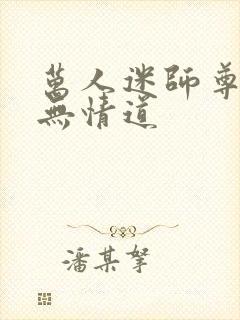 萬人迷師尊
無情道
潘某拏